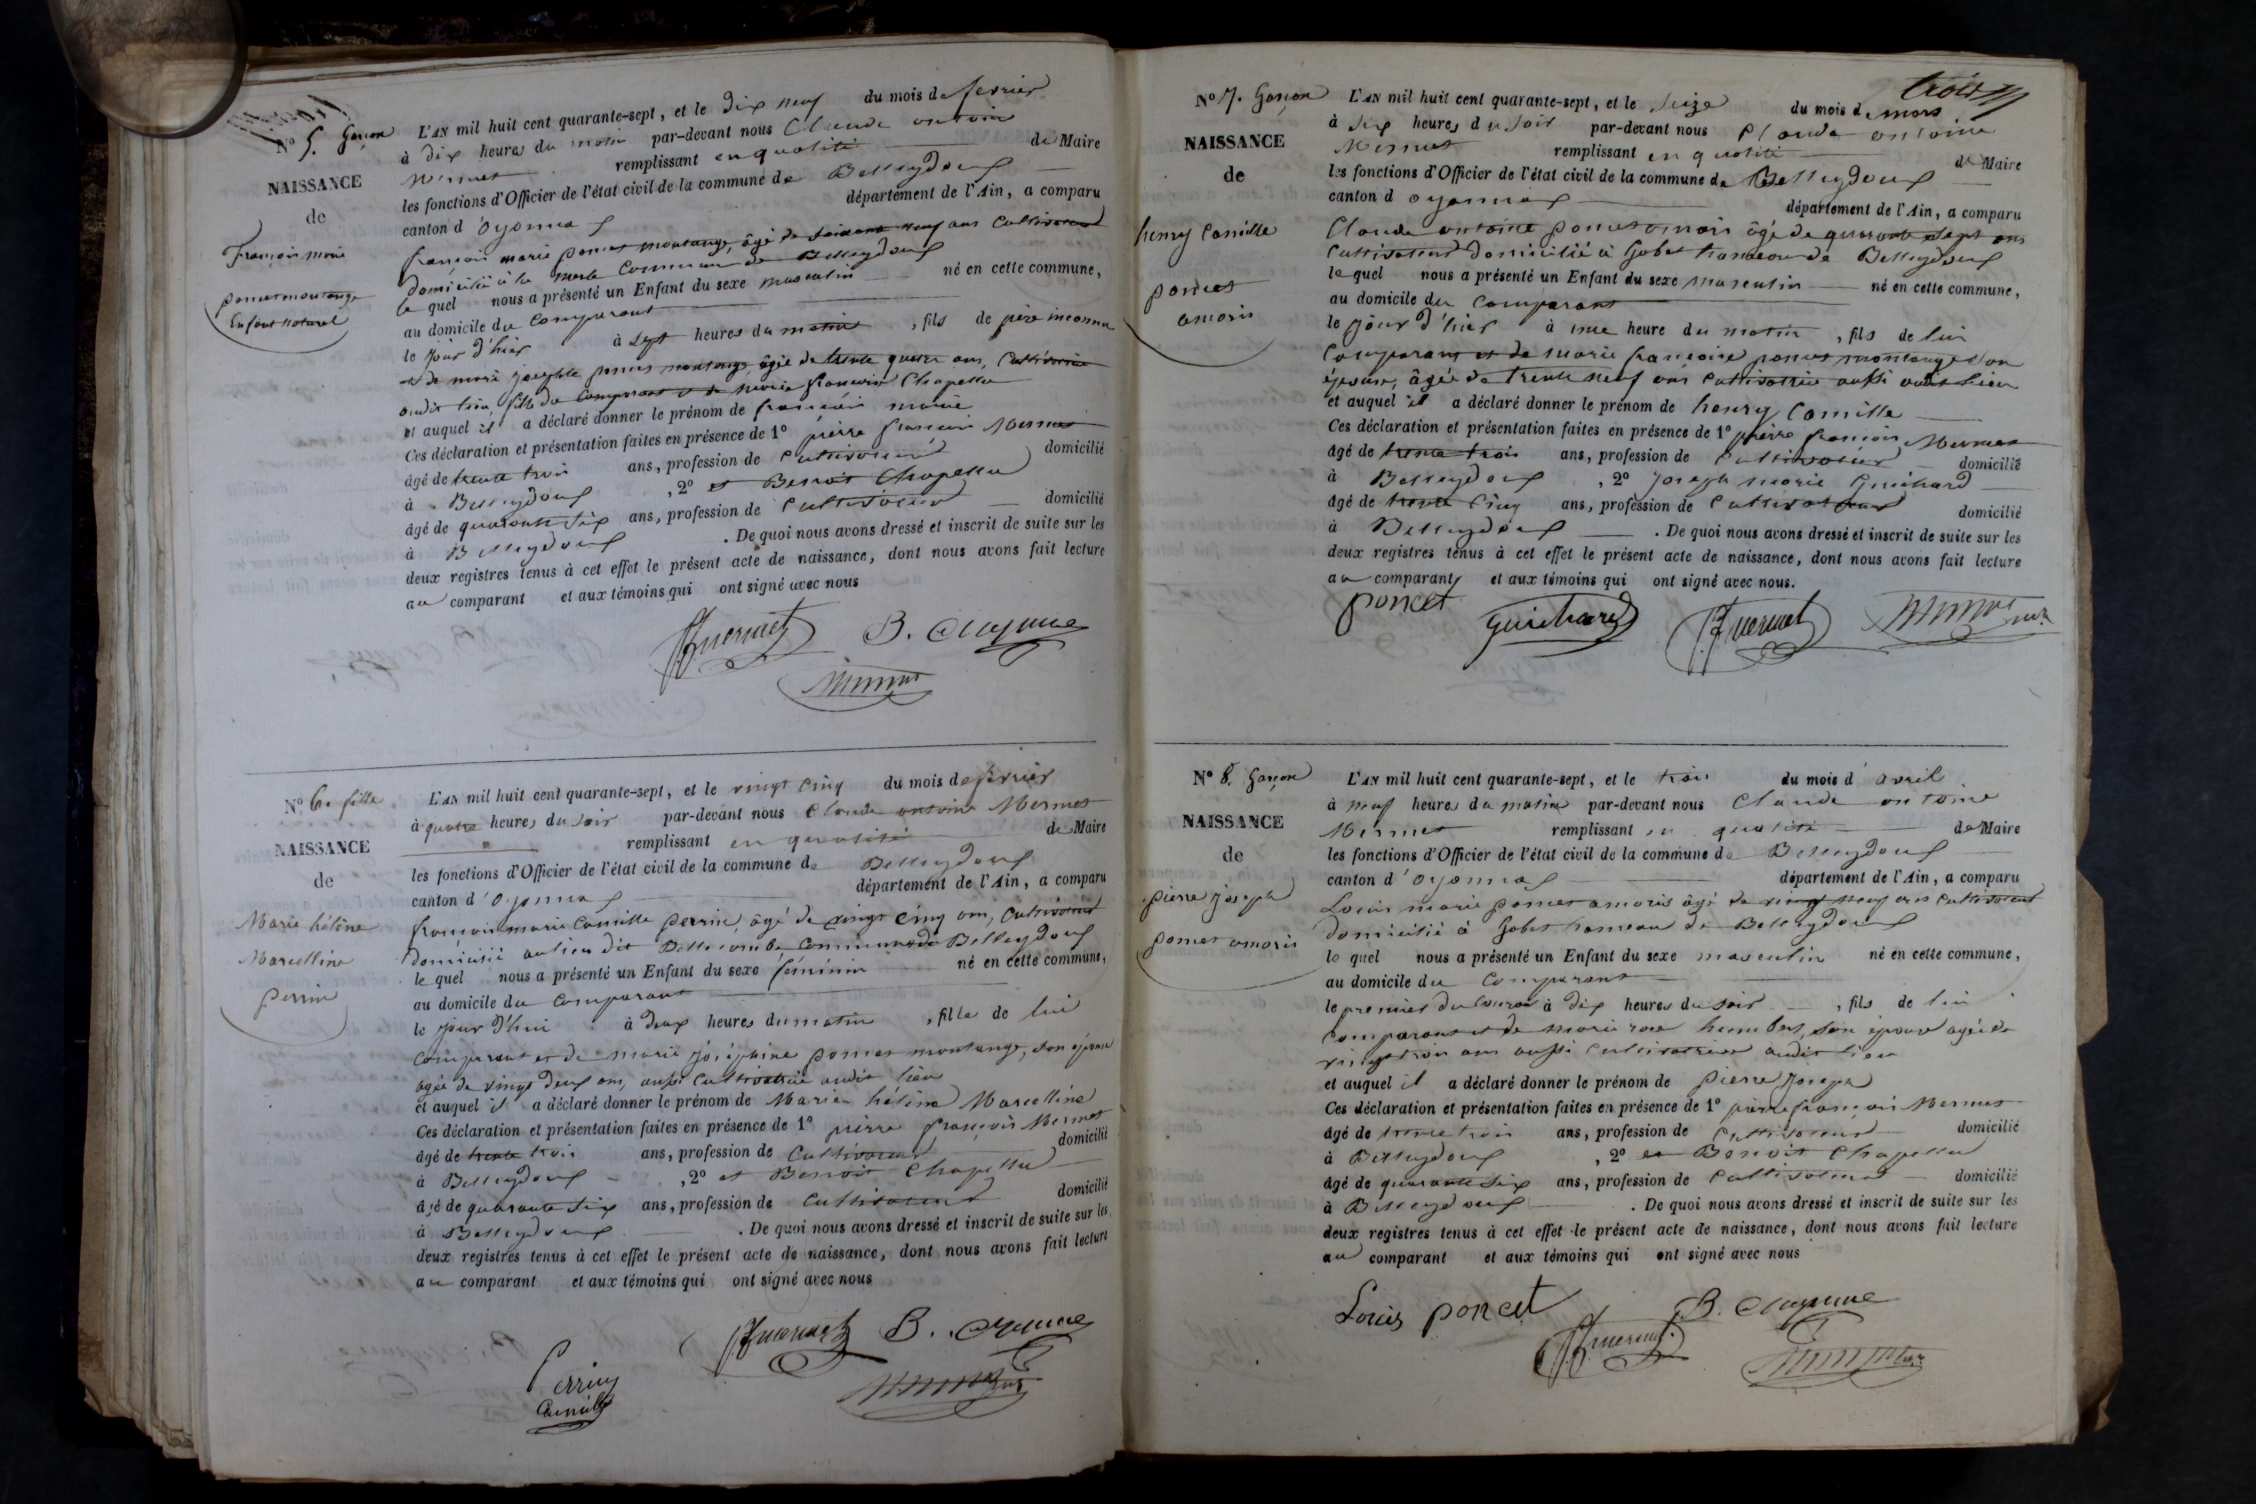 N° 5. Garçon
NAISSANCE
de
François marie
poncet montange
Enfant naturel
L'AN mil huit cent quarante-sept, et le dix neuf du mois de fevrier
à dix heures du matin par-devant nous Claude antoine
Mermet remplissant en qualité de Maire
les fonctions d'Officier de l'état civil de la commune de Belleydoux
canton d'Oyonnax département de l'Ain, a comparu
françois marie poncet montange, âgé de soixante neuf ans Cultivateur
domicilié à la Commune de Belleydoux
le quel nous a présenté un Enfant du sexe masculin né en cette commune,
au domicile du Comparant
le jour d'hier à sept heures du matin, fils de père inconnu
et de marie josephte poncet montange, âgée de trente quatre ans, Cultivatrice
audit lieu, fille du Comparant et de marie françoise Chapellu
et auquel il a déclaré donner le prénom de françois marie
Ces déclaration et présentation faites en présence de 1° pierre françois Mermet
âgé de trente trois ans, profession de Cultivateur domicilié
à Belleydoux, 2° et Benoit Chapellu
âgé de quarante six ans, profession de Cultivateur domicilié
à Belleydoux. De quoi nous avons dressé et inscrit de suite sur les
deux registres tenus à cet effet le présent acte de naissance, dont nous avons fait lecture
au comparant et aux témoins qui ont signé avec nous
N° 6. fille
NAISSANCE
de
Marie hélène
Marcelline
perrin
L'AN mil huit cent quarante-sept, et le vingt cinq du mois de fevrier
à quatre heures du soir par-devant nous Claude antoine Mermet
remplissant en qualité de Maire
les fonctions d'Officier de l'état civil de la commune de Belleydoux
canton d'Oyonnax département de l'Ain, a comparu
françois marie Camille perrin, âgé de vingt cinq ans, Cultivateur
domicilié au lieu dit Bellecombe Commune de Belleydoux
le quel nous a présenté un Enfant du sexe féminin né en cette commune,
au domicile du Comparant
le jour d'hui à deux heures du matin, fille de lui
Comparant et de marie joséphine poncet montange, son épouse
agée de vingt deux ans, aussi Cultivatrice audit lieu
et auquel il a déclaré donner le prénom de Marie hélène Marcelline
Ces déclaration et présentation faites en présence de 1° pierre françois Mermet
âgé de trente trois ans, profession de Cultivateur domicilié
à Belleydoux, 2° et Benoit Chapellu
âgé de quarante six ans, profession de Cultivateur domicilié
à Belleydoux. De quoi nous avons dressé et inscrit de suite sur les
deux registres tenus à cet effet le présent acte de naissance, dont nous avons fait lecture
au comparant et aux témoins qui ont signé avec nous
Perrin
Camille
trois
N° 7. Garçon
NAISSANCE
de
henry Camille
poncet
amoris
L'AN mil huit cent quarante-sept, et le seize du mois de mars
à six heures du soir par-devant nous Claude antoine
Mermet remplissant en qualité de Maire
les fonctions d'Officier de l'état civil de la commune de Belleydoux
canton d oyonnax département de l'Ain, a comparu
Claude antoine poncet amoris âgé de quarante sept ans
Cultivateur domicilié à Gobet hameau de Belleydoux
le quel nous a présenté un Enfant du sexe masculin né en cette commune,
au domicile du Comparant
le jour d'hier à une heure du matin, fils de lui
Comparant et de marie françoise poncet montange son
épouse, âgée de trente neuf ans Cultivatrice aussi audit lieu
et auquel il a déclaré donner le prénom de henry Camille
Ces déclaration et présentation faites en présence de 1° pierre françois Mermet
âgé de trente trois ans, profession de Cultivateur domicilié
à Belleydoux, 2° Joseph marie Guichard
âgé de trente cinq ans, profession de Cultivateur domicilié
à Belleydoux. De quoi nous avons dressé et inscrit de suite sur les
deux registres tenus à cet effet le présent acte de naissance, dont nous avons fait lecture
au comparant et aux témoins qui ont signé avec nous.
poncet Guichard
N° 8. Garçon
NAISSANCE
de
pierre joseph
poncet amoris
L'AN mil huit cent quarante-sept, et le trois du mois d'avril
à neuf heures du matin par-devant nous Claude antoine
Mermet remplissant en qualité de Maire
les fonctions d'Officier de l'état civil de la commune de Belleydoux
canton d'Oyonnax département de l'Ain, a comparu
Louis marie poncet amoris âgé de vingt neuf ans Cultivateur
domicilié à Gobet hameau de Belleydoux
le quel nous a présenté un Enfant du sexe masculin né en cette commune,
au domicile du Comparant
le premier du Courant à dix heures du soir, fils de lui
Comparant et de marie rose humbert, son épouse agée de
vingt trois ans aussi Cultivatrice audit lieu
et auquel il a déclaré donner le prénom de pierre joseph
Ces déclaration et présentation faites en présence de 1° pierre françois Mermet
âgé de trente trois ans, profession de Cultivateur domicilié
à Belleydoux, 2° et Benoit Chapellu
âgé de quarante six ans, profession de Cultivateur domicilié
à Belleydoux. De quoi nous avons dressé et inscrit de suite sur les
deux registres tenus à cet effet le présent acte de naissance, dont nous avons fait lecture
au comparant et aux témoins qui ont signé avec nous
Louis poncet